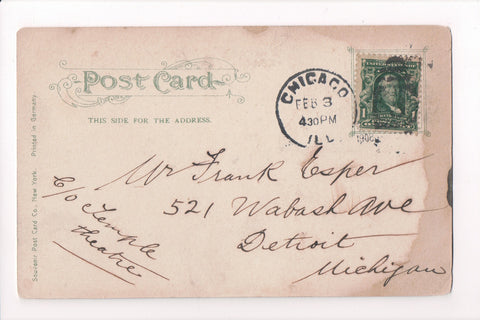 Post Card
THIS SIDE FOR THE ADDRESS.
CHICAGO
FEB 3
4 30 PM
ILL.
Mr Frank Esper
521 Wabash Ave
Detroit
Michigan
C/O Temple
theatre
Souvenir Post Card Co., New York. Printed in Germany.